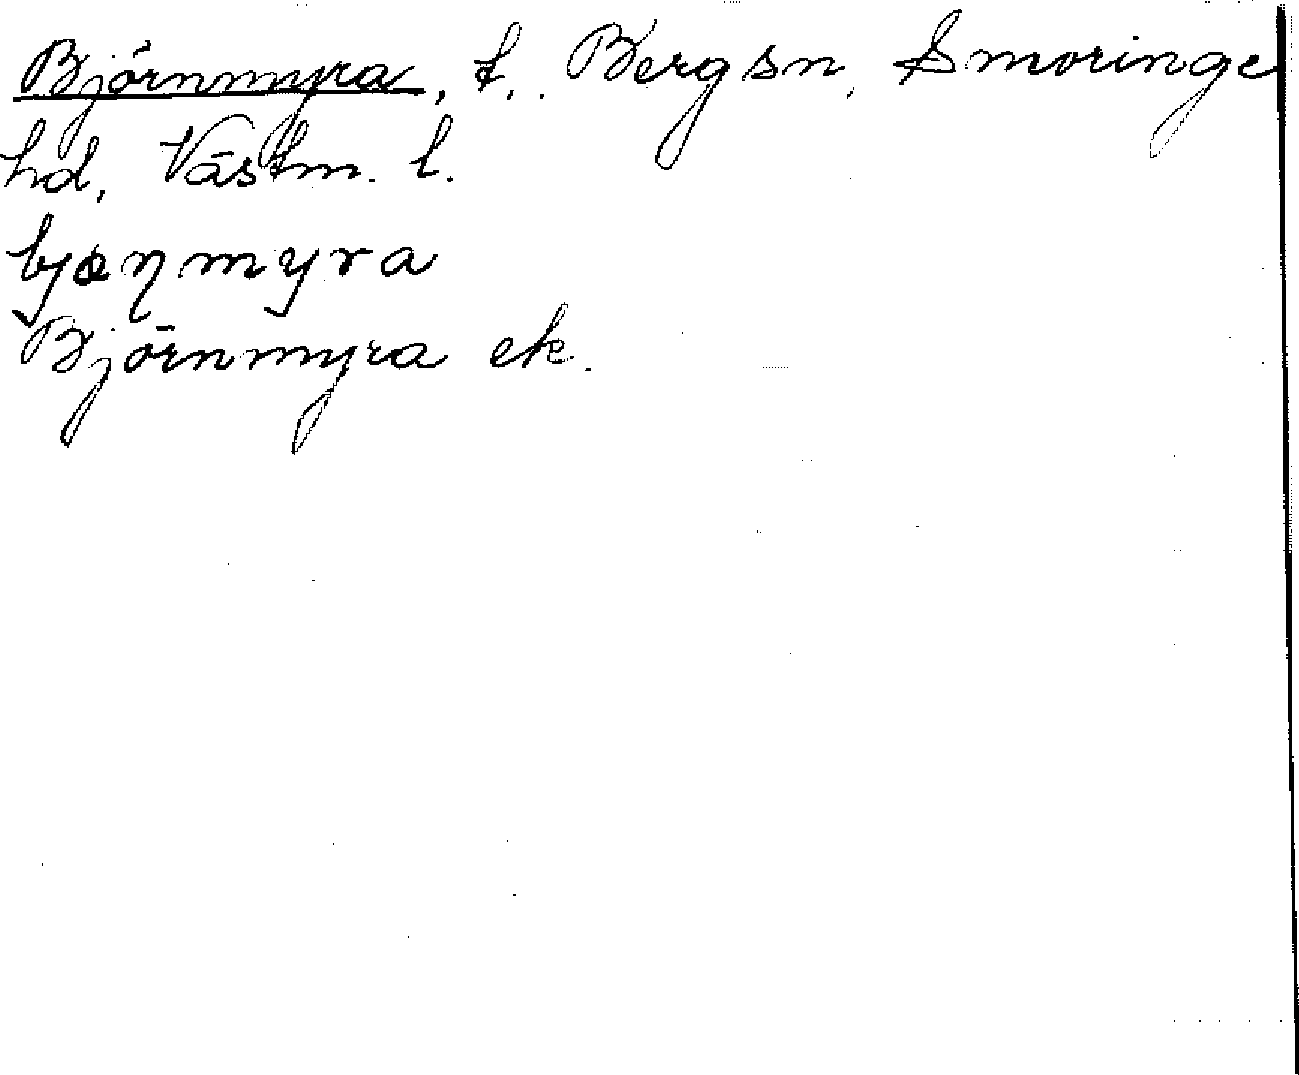 Björnmyra, t., Bergsn, Smoringe
hd, Västm. l.
bjɷɳmyra
Björnmyra ek.